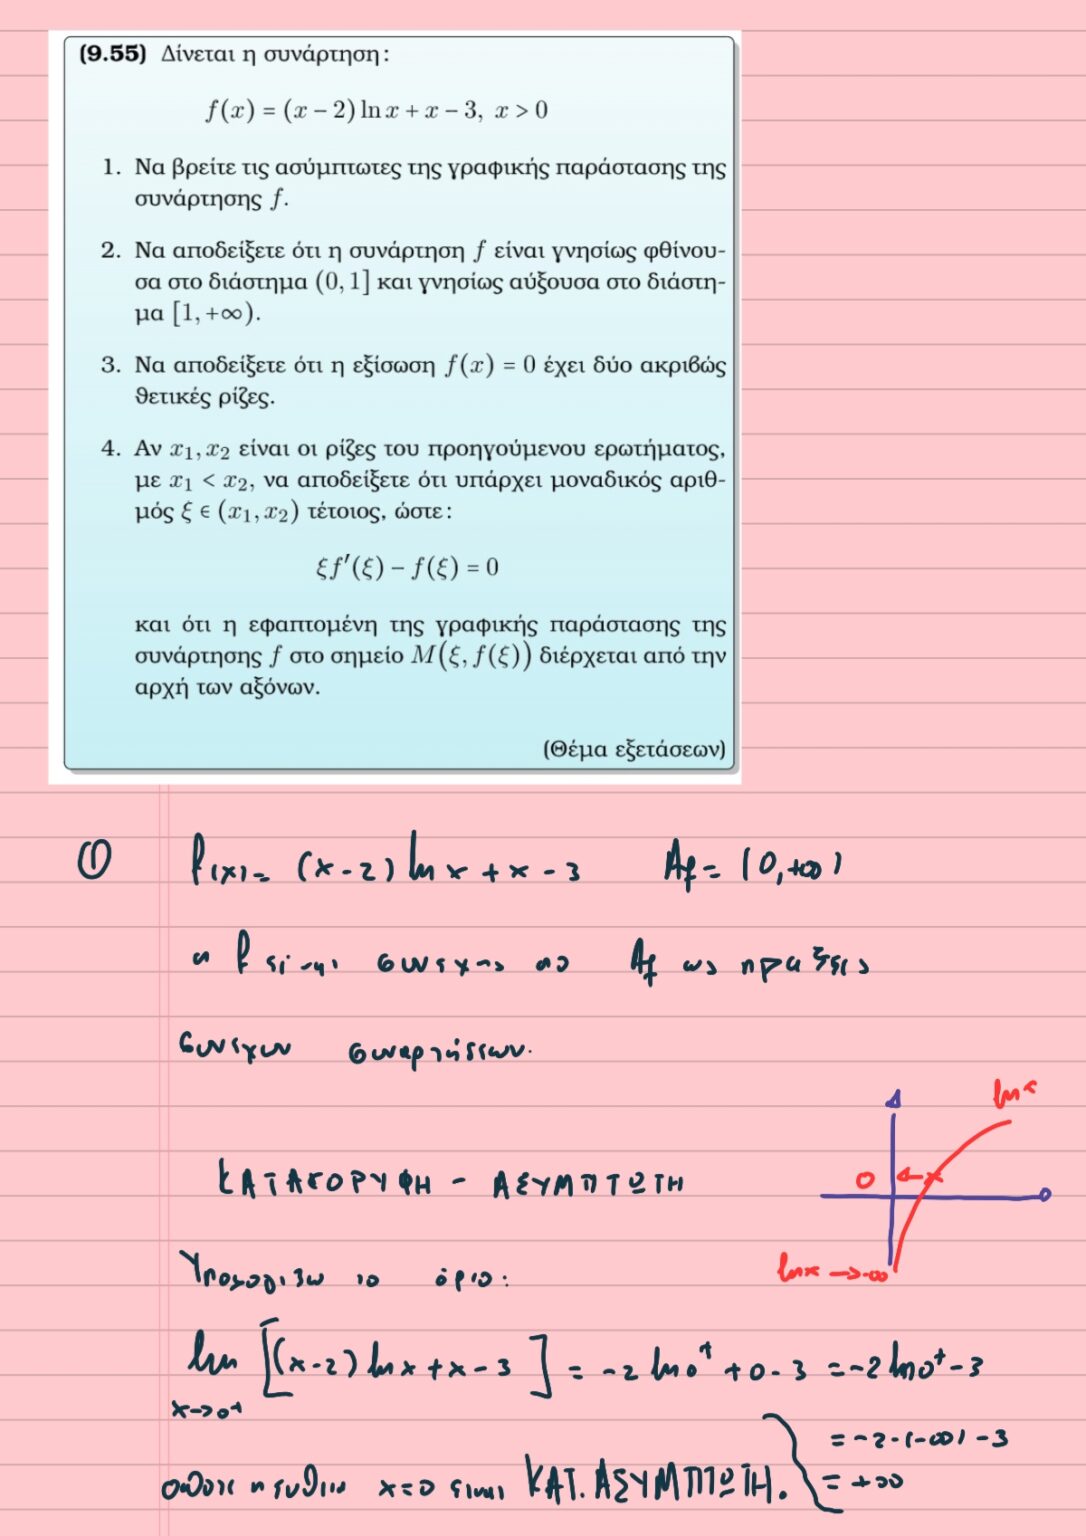 (9.55) Δίνεται η συνάρτηση:
f(x) = (x − 2) ln x + x − 3, x > 0
1. Να βρείτε τις ασύμπτωτες της γραφικής παράστασης της
συνάρτησης f.
2. Να αποδείξετε ότι η συνάρτηση f είναι γνησίως φθίνου-
σα στο διάστημα (0, 1] και γνησίως αύξουσα στο διάστη-
μα [1, +∞).
3. Να αποδείξετε ότι η εξίσωση f(x) = 0 έχει δύο ακριβώς
θετικές ρίζες.
4. Αν x₁, x₂ είναι οι ρίζες του προηγούμενου ερωτήματος,
με x₁ < x₂, να αποδείξετε ότι υπάρχει μοναδικός αριθ-
μός ξ ∈ (x₁, x₂) τέτοιος, ώστε:
ξf′(ξ) − f(ξ) = 0
και ότι η εφαπτομένη της γραφικής παράστασης της
συνάρτησης f στο σημείο M(ξ, f(ξ)) διέρχεται από την
αρχή των αξόνων.
(Θέμα εξετάσεων)
① f(x) = (x-2) ln x + x - 3 Af = (0, +∞)
η f είναι συνεχής στο Af ως πράξεις
συνεχών συναρτήσεων.
ln x
0 x
ΚΑΤΑΚΟΡΥΦΗ - ΑΣΥΜΠΤΩΤΗ
lnx → -∞
Υπολογίζω το όριο:
lim [(x-2) ln x + x - 3] = -2 ln 0⁺ + 0 - 3 = -2 ln 0⁺ - 3
x→0⁺
= -2·(-∞) - 3
= +∞
οπότε η ευθεία x=0 είναι ΚΑΤ. ΑΣΥΜΠΤΩΤΗ.